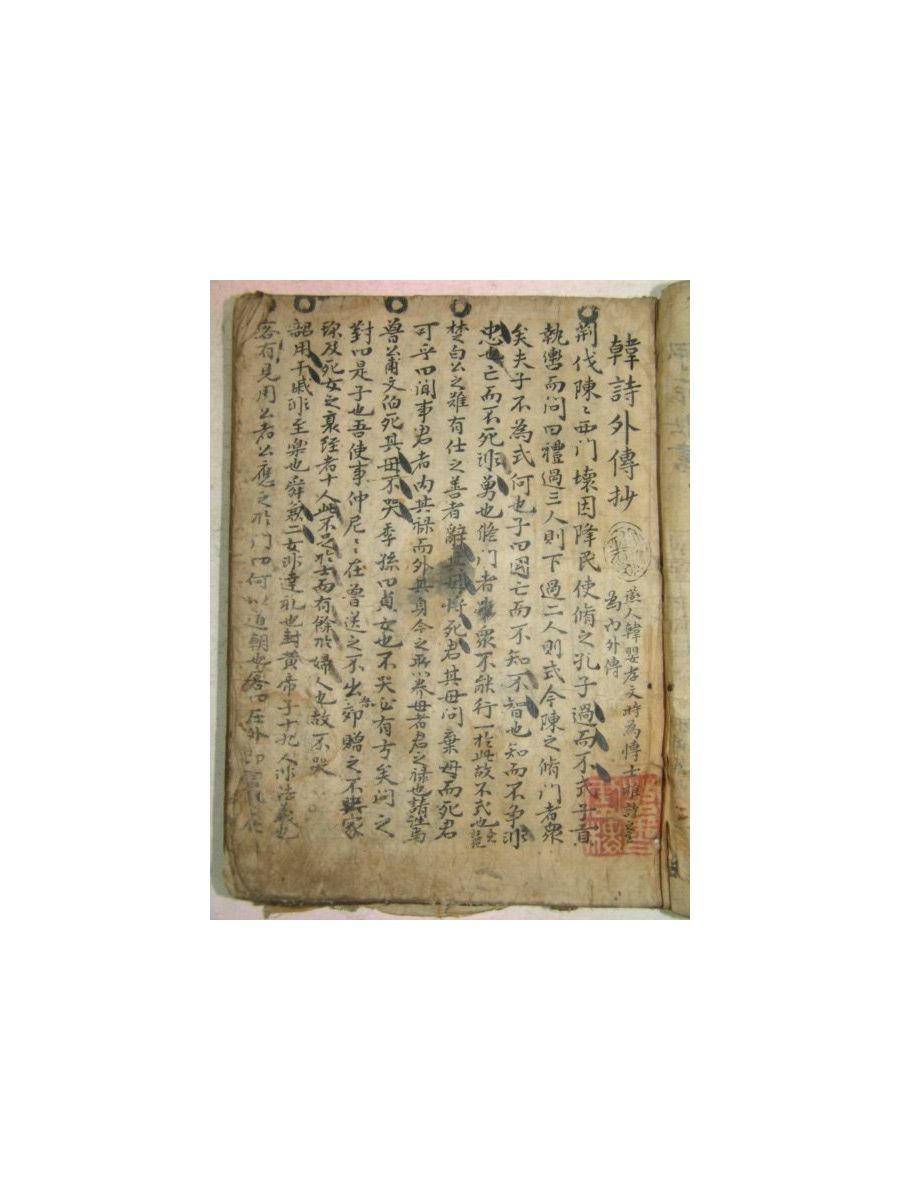 韓詩外傳抄
燕人韓嬰孝文時為博士推詩意
為內外傳
荆伐陳〻西門壞因降民使脩之孔子過而不式子貢
執轡而問曰禮過三人則下過二人則式今陳之脩門者衆
矣夫子不為式何也子曰國亡而不知不智也知而不爭非
忠也亡而不死非勇也脩門者雖衆不能行一於此故不式也
楚白公之難有仕之善者辭其母將死君其母問棄母而死君
可乎曰聞事君者內其祿而外其身今之所以養母者君之祿也請
魯公甫文伯死其母不哭季孫曰貞女也不哭必有方矣問之
對曰是子也吾使事仲尼〻在魯送之不出郊贈之不與家
珍及死女之衰絰者十人此不足於士而有餘於婦人也故不哭
韶用干戚非至樂也舜兼二女非達礼也封黃帝子十九人非法義也
客有見周公者公應之於門曰何以道朝也客曰在外即言外